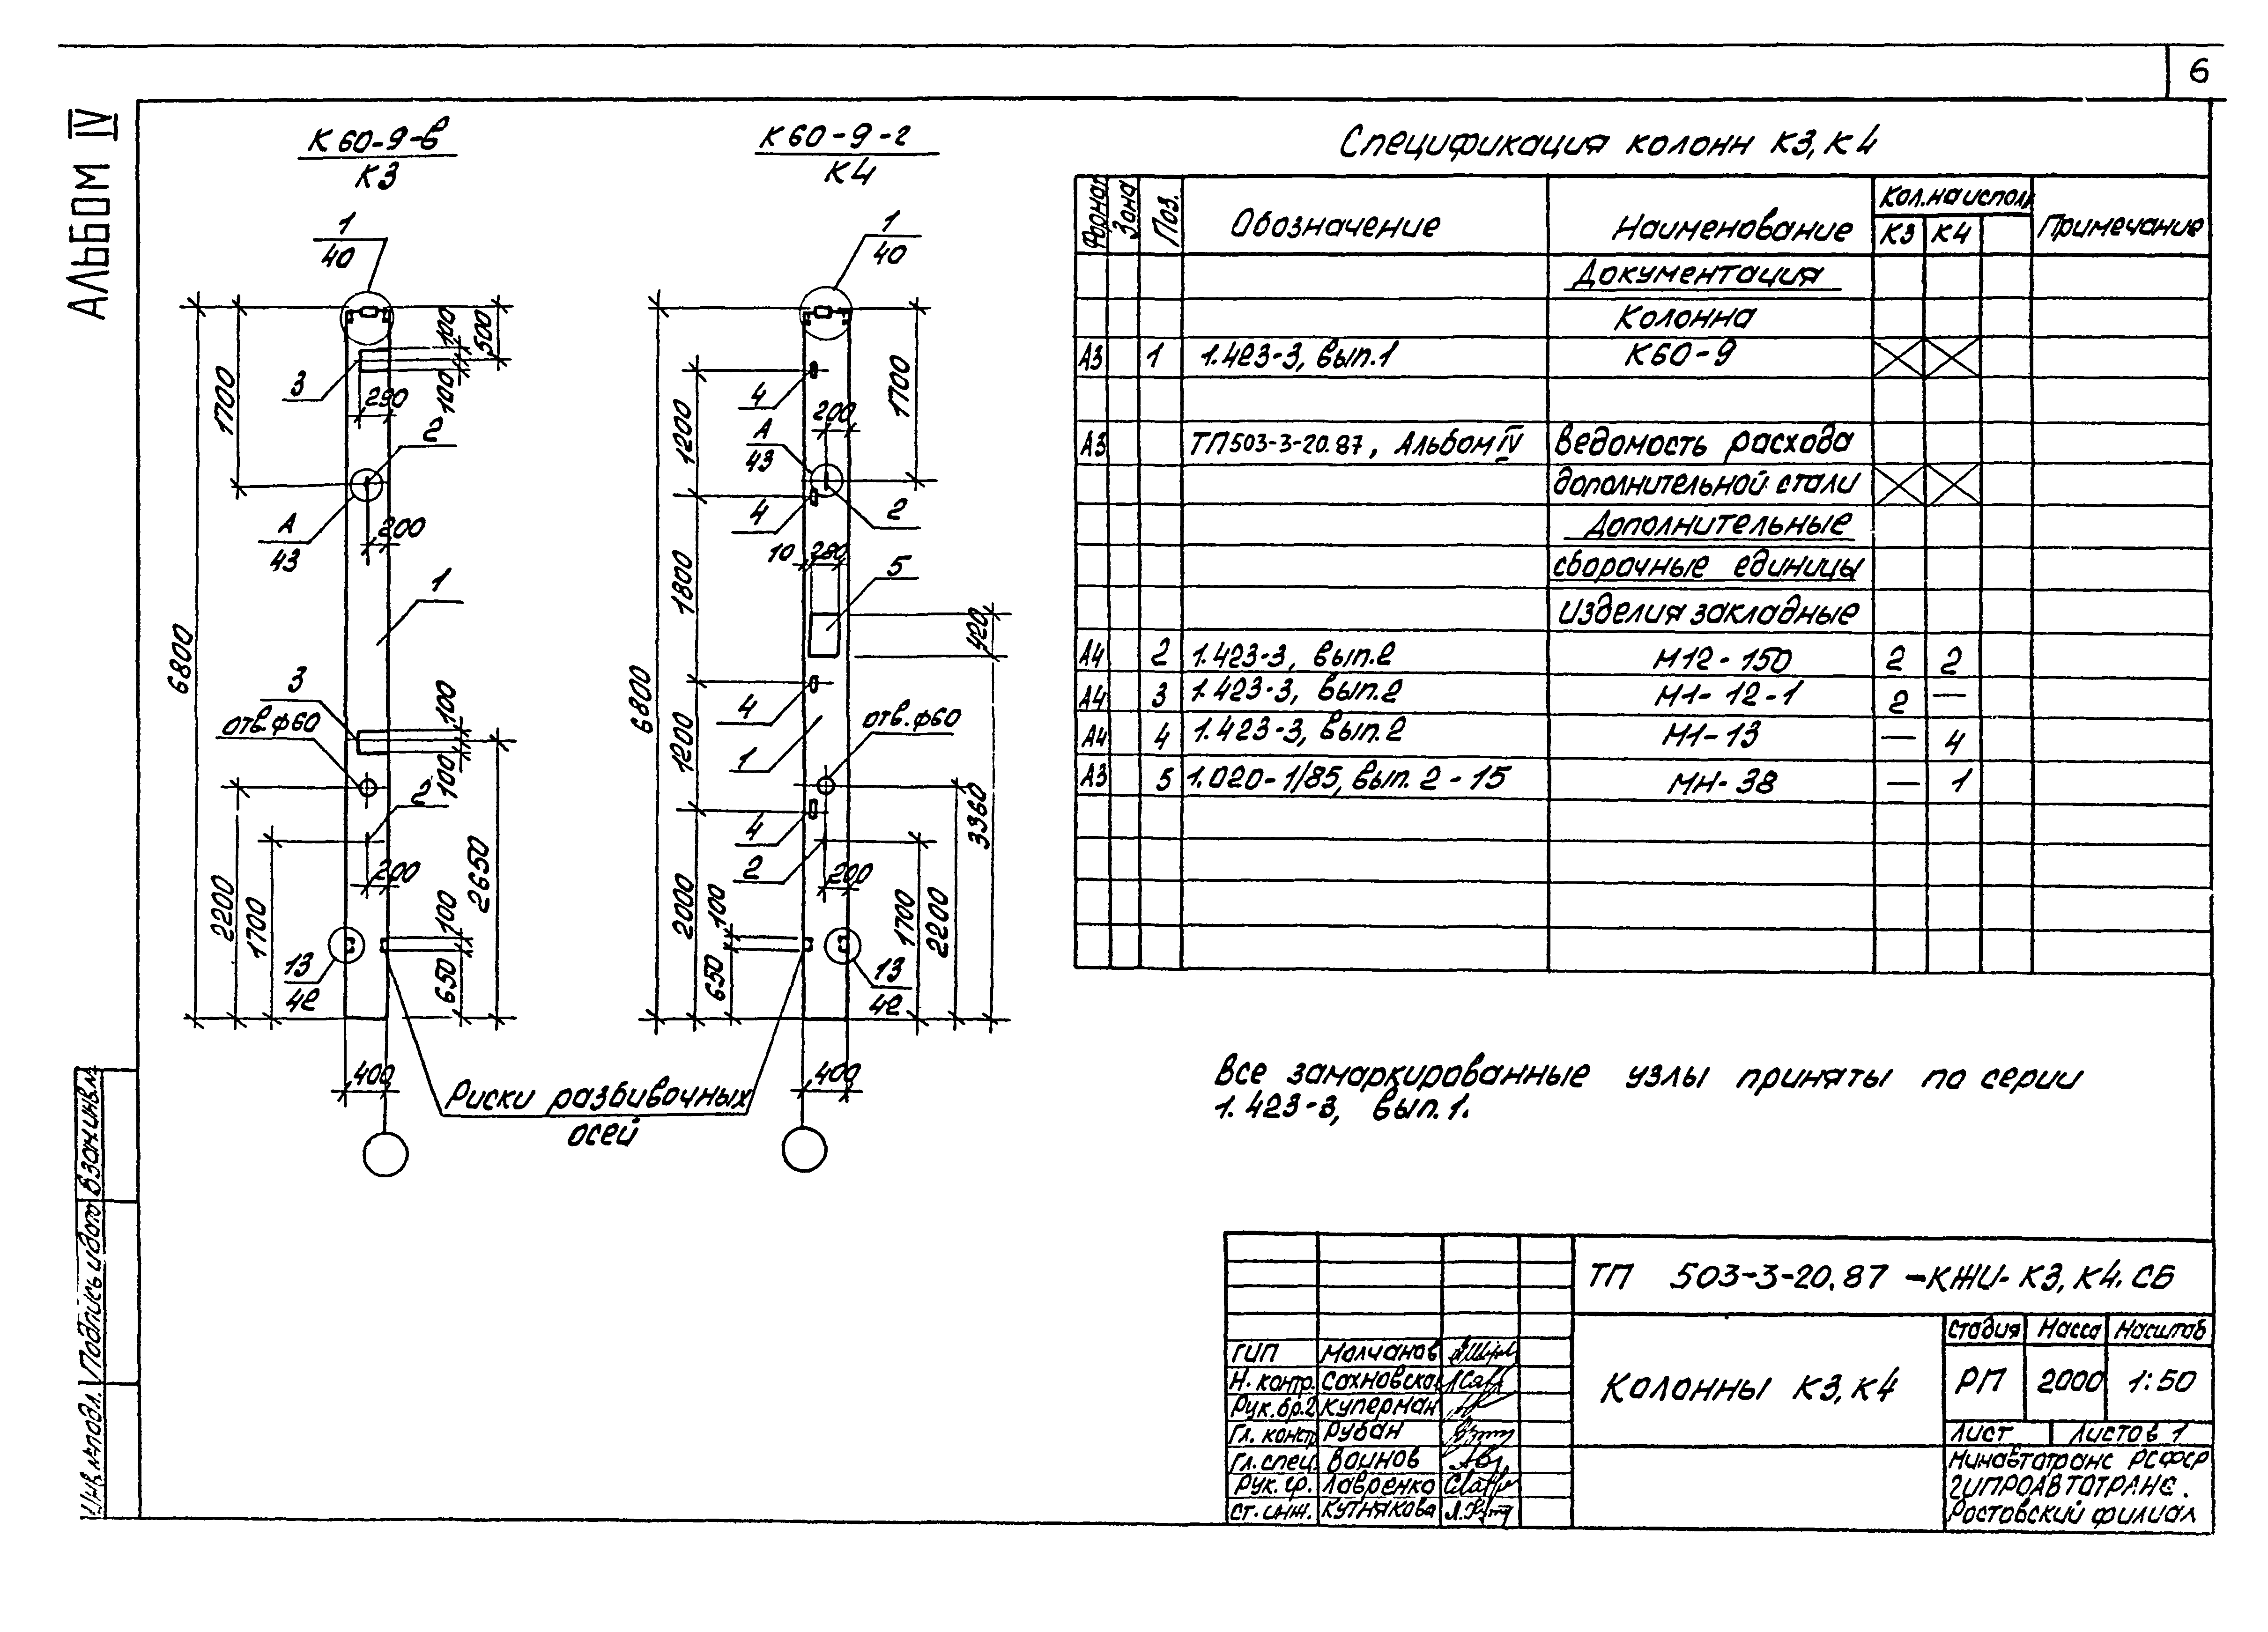 6
АЛЬБОМ IV
К60-9-в
К3
К60-9-г
К4
1
40
6800
1700
100
500
100
3
290
2
А
43
200
1
3
отв.ф60
100
100
2650
2
2200
1700
200
100
650
13
42
400
1
40
6800
1200
1700
4
200
А
43
4
2
10
280
5
1800
420
4
1200
1
отв.ф60
4
2
200
2000
100
650
1700
2200
3360
13
42
400
Риски разбивочных
осей
Спецификация колонн К3, К4
Формат
Зона
Поз.
Обозначение
Наименование
Кол.на исполн
К3
К4
Примечание
Документация
Колонна
А3 1 1.423-3, вып.1 К60-9
А3 ТП503-3-20.87, Альбом IV Ведомость расхода
дополнительной стали
Дополнительные
сборочные единицы
Изделия закладные
А4 2 1.423-3, вып.2 М12-150 2 2
А4 3 1.423-3, вып.2 М1-12-1 2 —
А4 4 1.423-3, вып.2 М1-13 — 4
А3 5 1.020-1/85, вып. 2-15 МН-38 — 1
Все замаркированные узлы приняты по серии
1.423-3, вып.1.
ТП 503-3-20.87 -КЖИ-К3,К4.СБ
Колонны К3,К4
Стадия Масса Масштаб
РП 2000 1:50
Лист Листов 1
Минавтотранс РСФСР
ГИПРОАВТОТРАНС.
Ростовский филиал
ГИП Молчанов
Н. контр. Сахновская
Рук.бр.2 Куперман
Гл. констр Рубан
Гл.спец. Воинов
Рук. гр. Лавренко
Ст.инж. Кутнякова
Взам.инв.№
Подпись и дата
Инв.№подл.